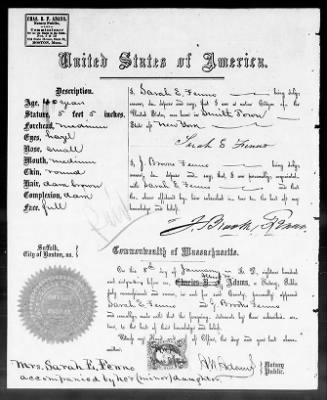 CHAS. B. F. ADAMS,
Notary Public,
Commissioner
BOSTON, Mass.
United States of America.
Description.
Age, 40 years
Stature, 5 feet 5 inches.
Forehead, medium
Eyes, hazel
Nose, small
Mouth, medium
Chin, round
Hair, dark brown
Complexion, dark
Face, full
I, Sarah E. Fenno being duly
sworn, do depose and say, that I am a native Citizen of the
United States, now born in Smith Town
State of New York
Sarah E Fenno
I, J. Brooks Fenno being duly
sworn, do depose and say, that I am personally acquainted
with Sarah E Fenno and that
her above affidavit by subscribed is true to the best of my
knowledge and belief.
J. Brooks Fenno
Suffolk,
City of Boston, ss.
Commonwealth of Massachusetts.
On this 8th day of January eighteen hundred
and before me, Charles Adams, a Notary Public
duly commissioned and sworn, in and for said County, personally appeared
Sarah E Fenno and J. Brooks Fenno
and made oath that the foregoing, by them subscribed, are
true, to the best of their knowledge and belief.
Witness my Hand and Seal of Office, the day and year above written.
Notary
Public.
Mrs. Sarah E. Fenno
accompanied by her (minor) daughter.